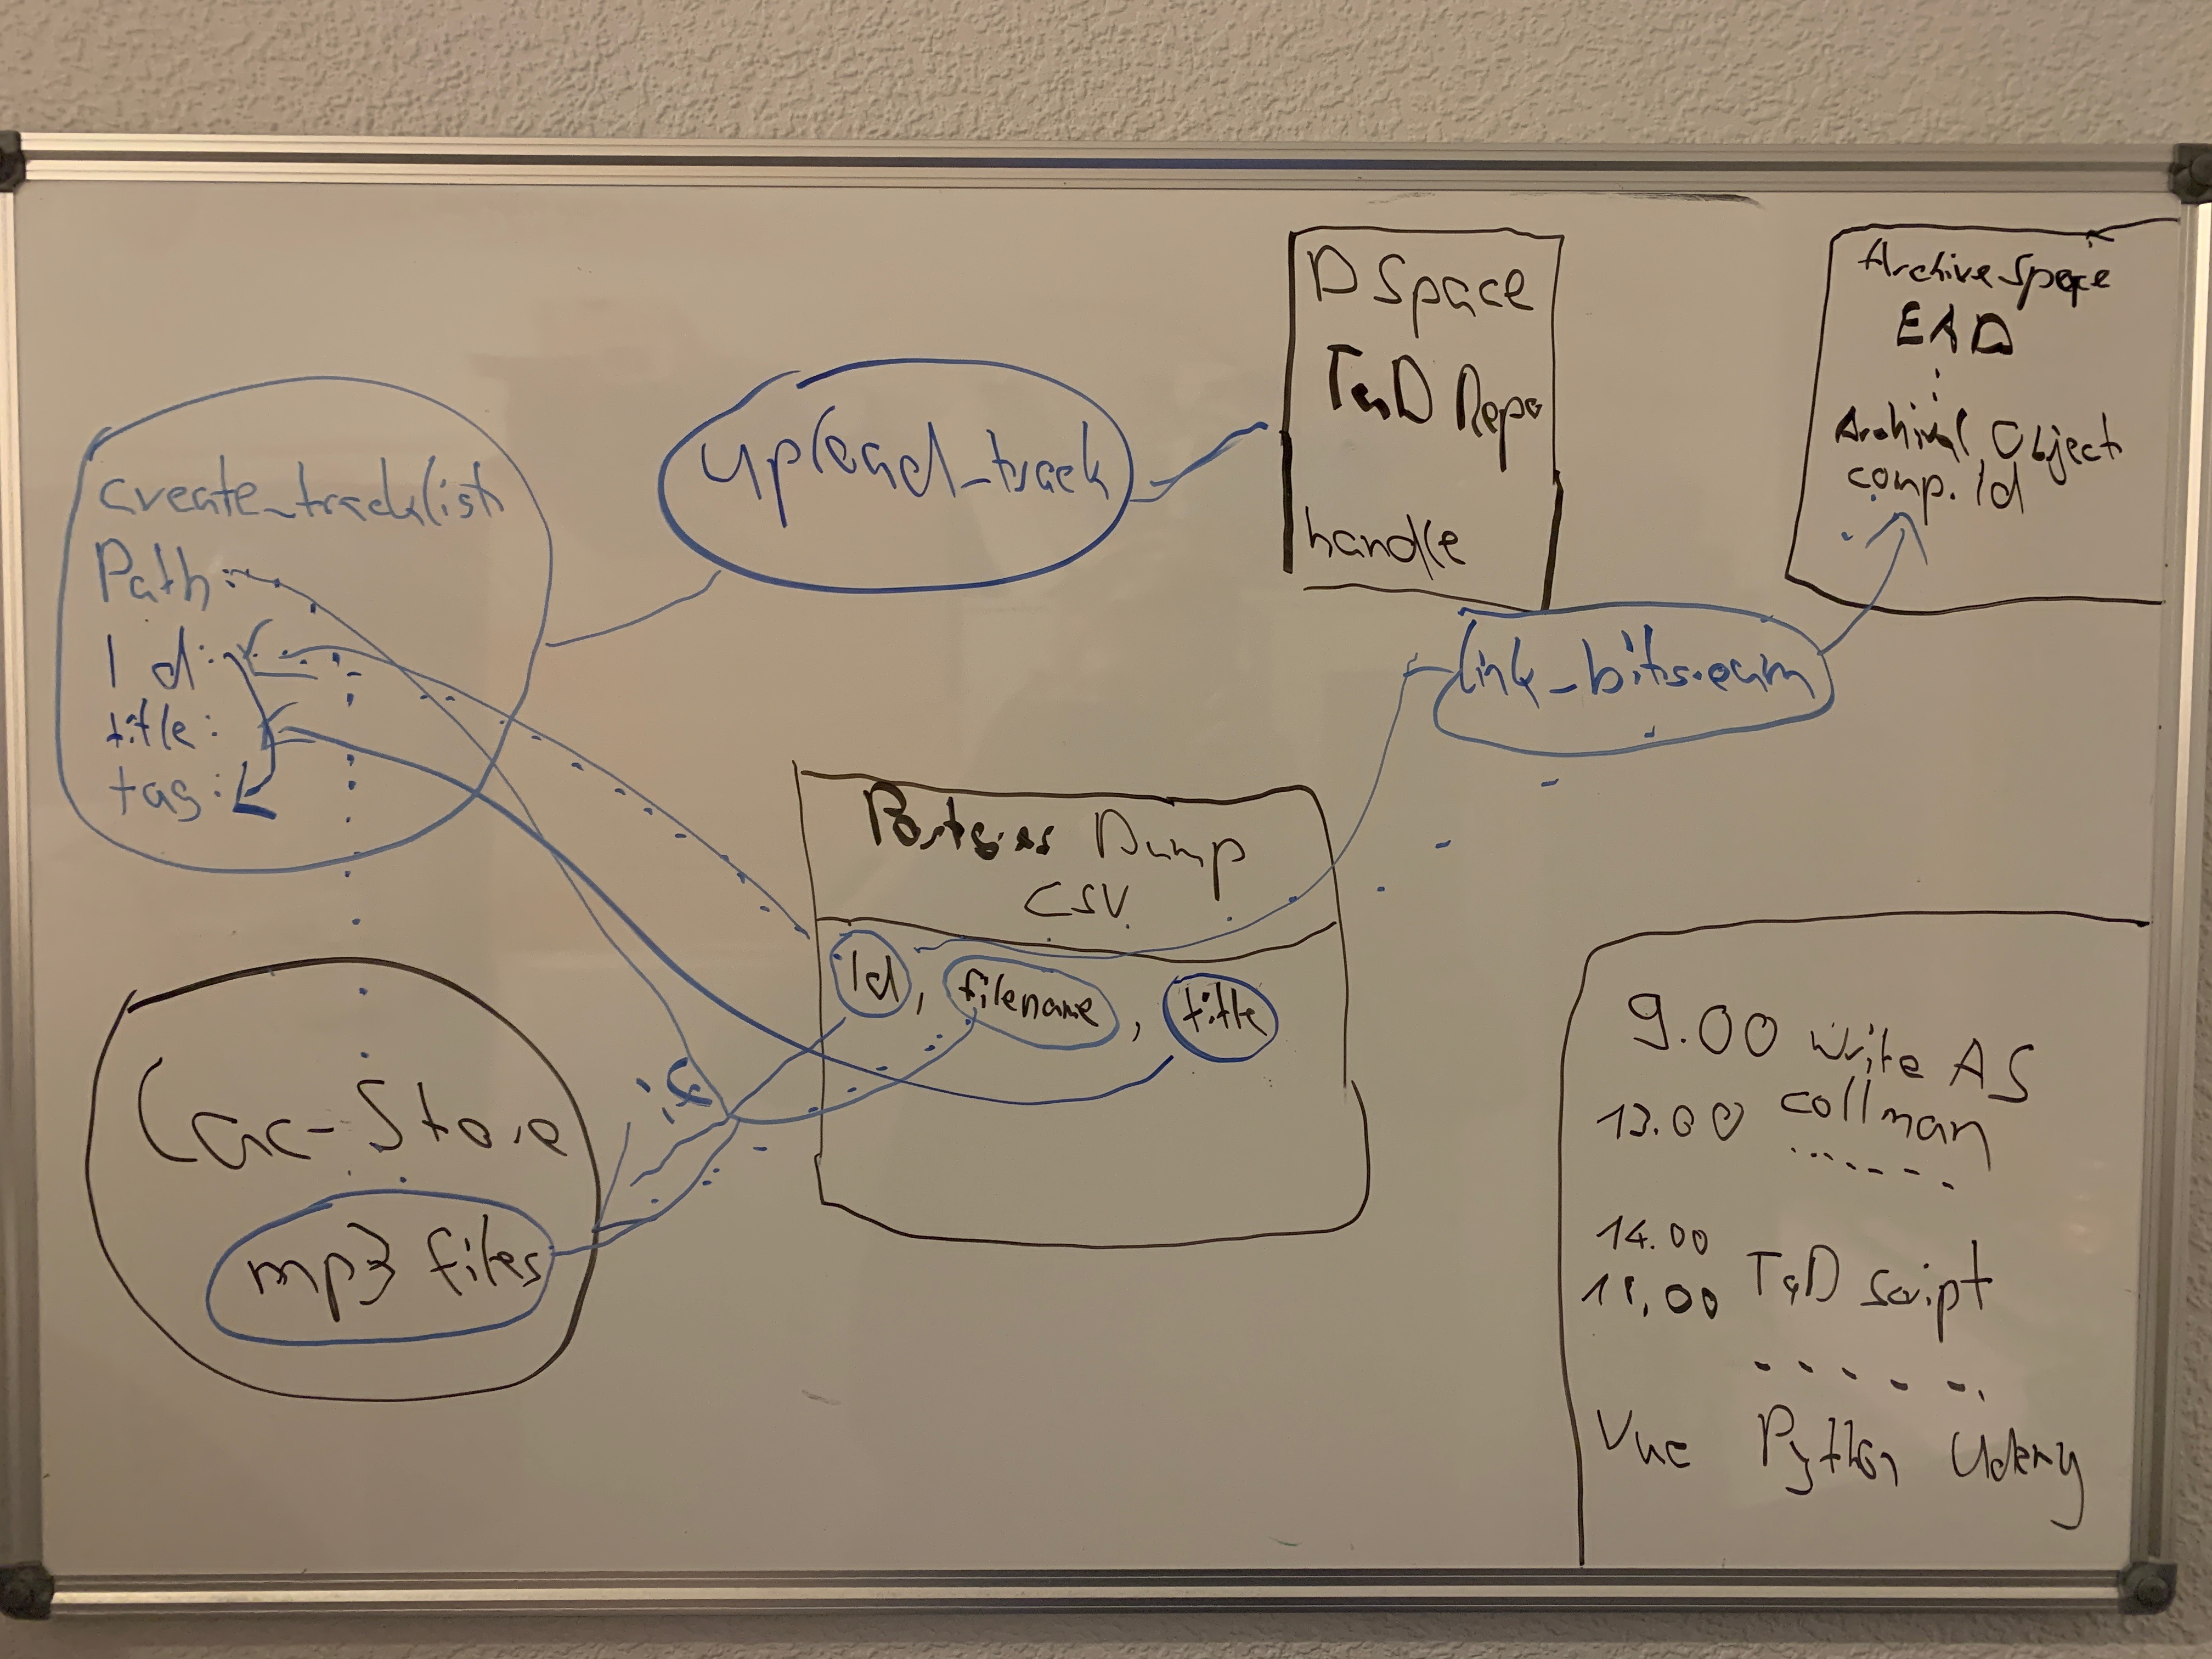 create_tracklist
Path:
Id:
title:
tag:
upload_track
D Space
TaD Repo
handle
Archive Space
EAD
Archival Object
comp. Id
link_bitsream
Dump
CSV
Id, filename, title
mp3 files
9.00 write AS
13.00 collman
14.00
TaD script
Vue Python Udemy